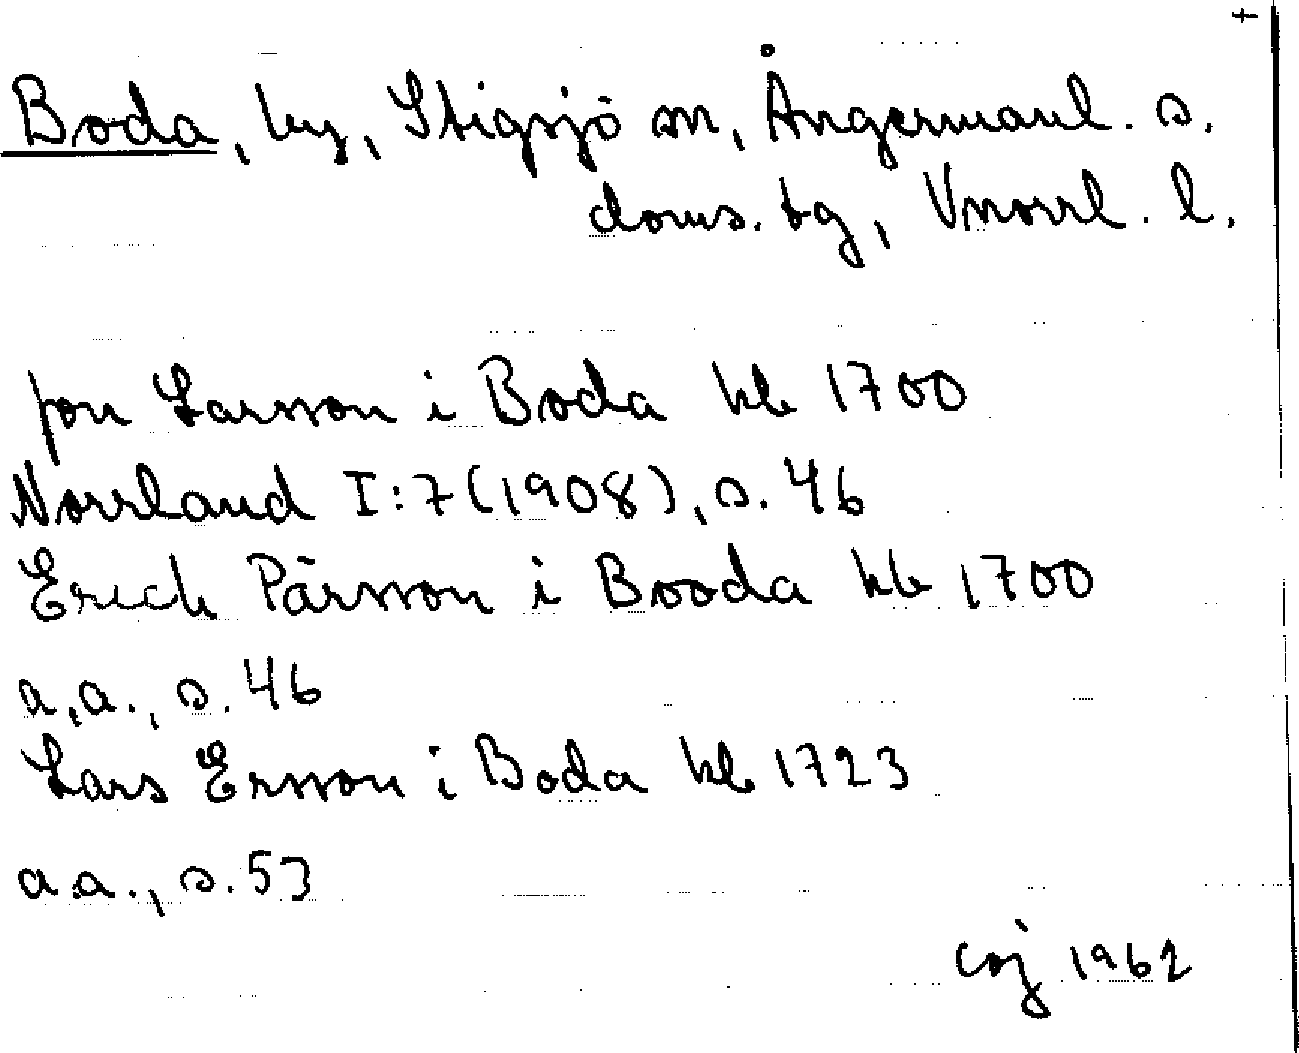 +
Boda, by, Stigsjö sn, Ångermanl. s.
doms. tg, Vnorrl. l.
jon Larsson i Boda kb 1700
Norrland I:7 (1908), s. 46
Erich Pärsson i Booda kb 1700
a.a., s. 46
Lars Ersson i Boda kb 1723
a.a., s. 53
coj 1962